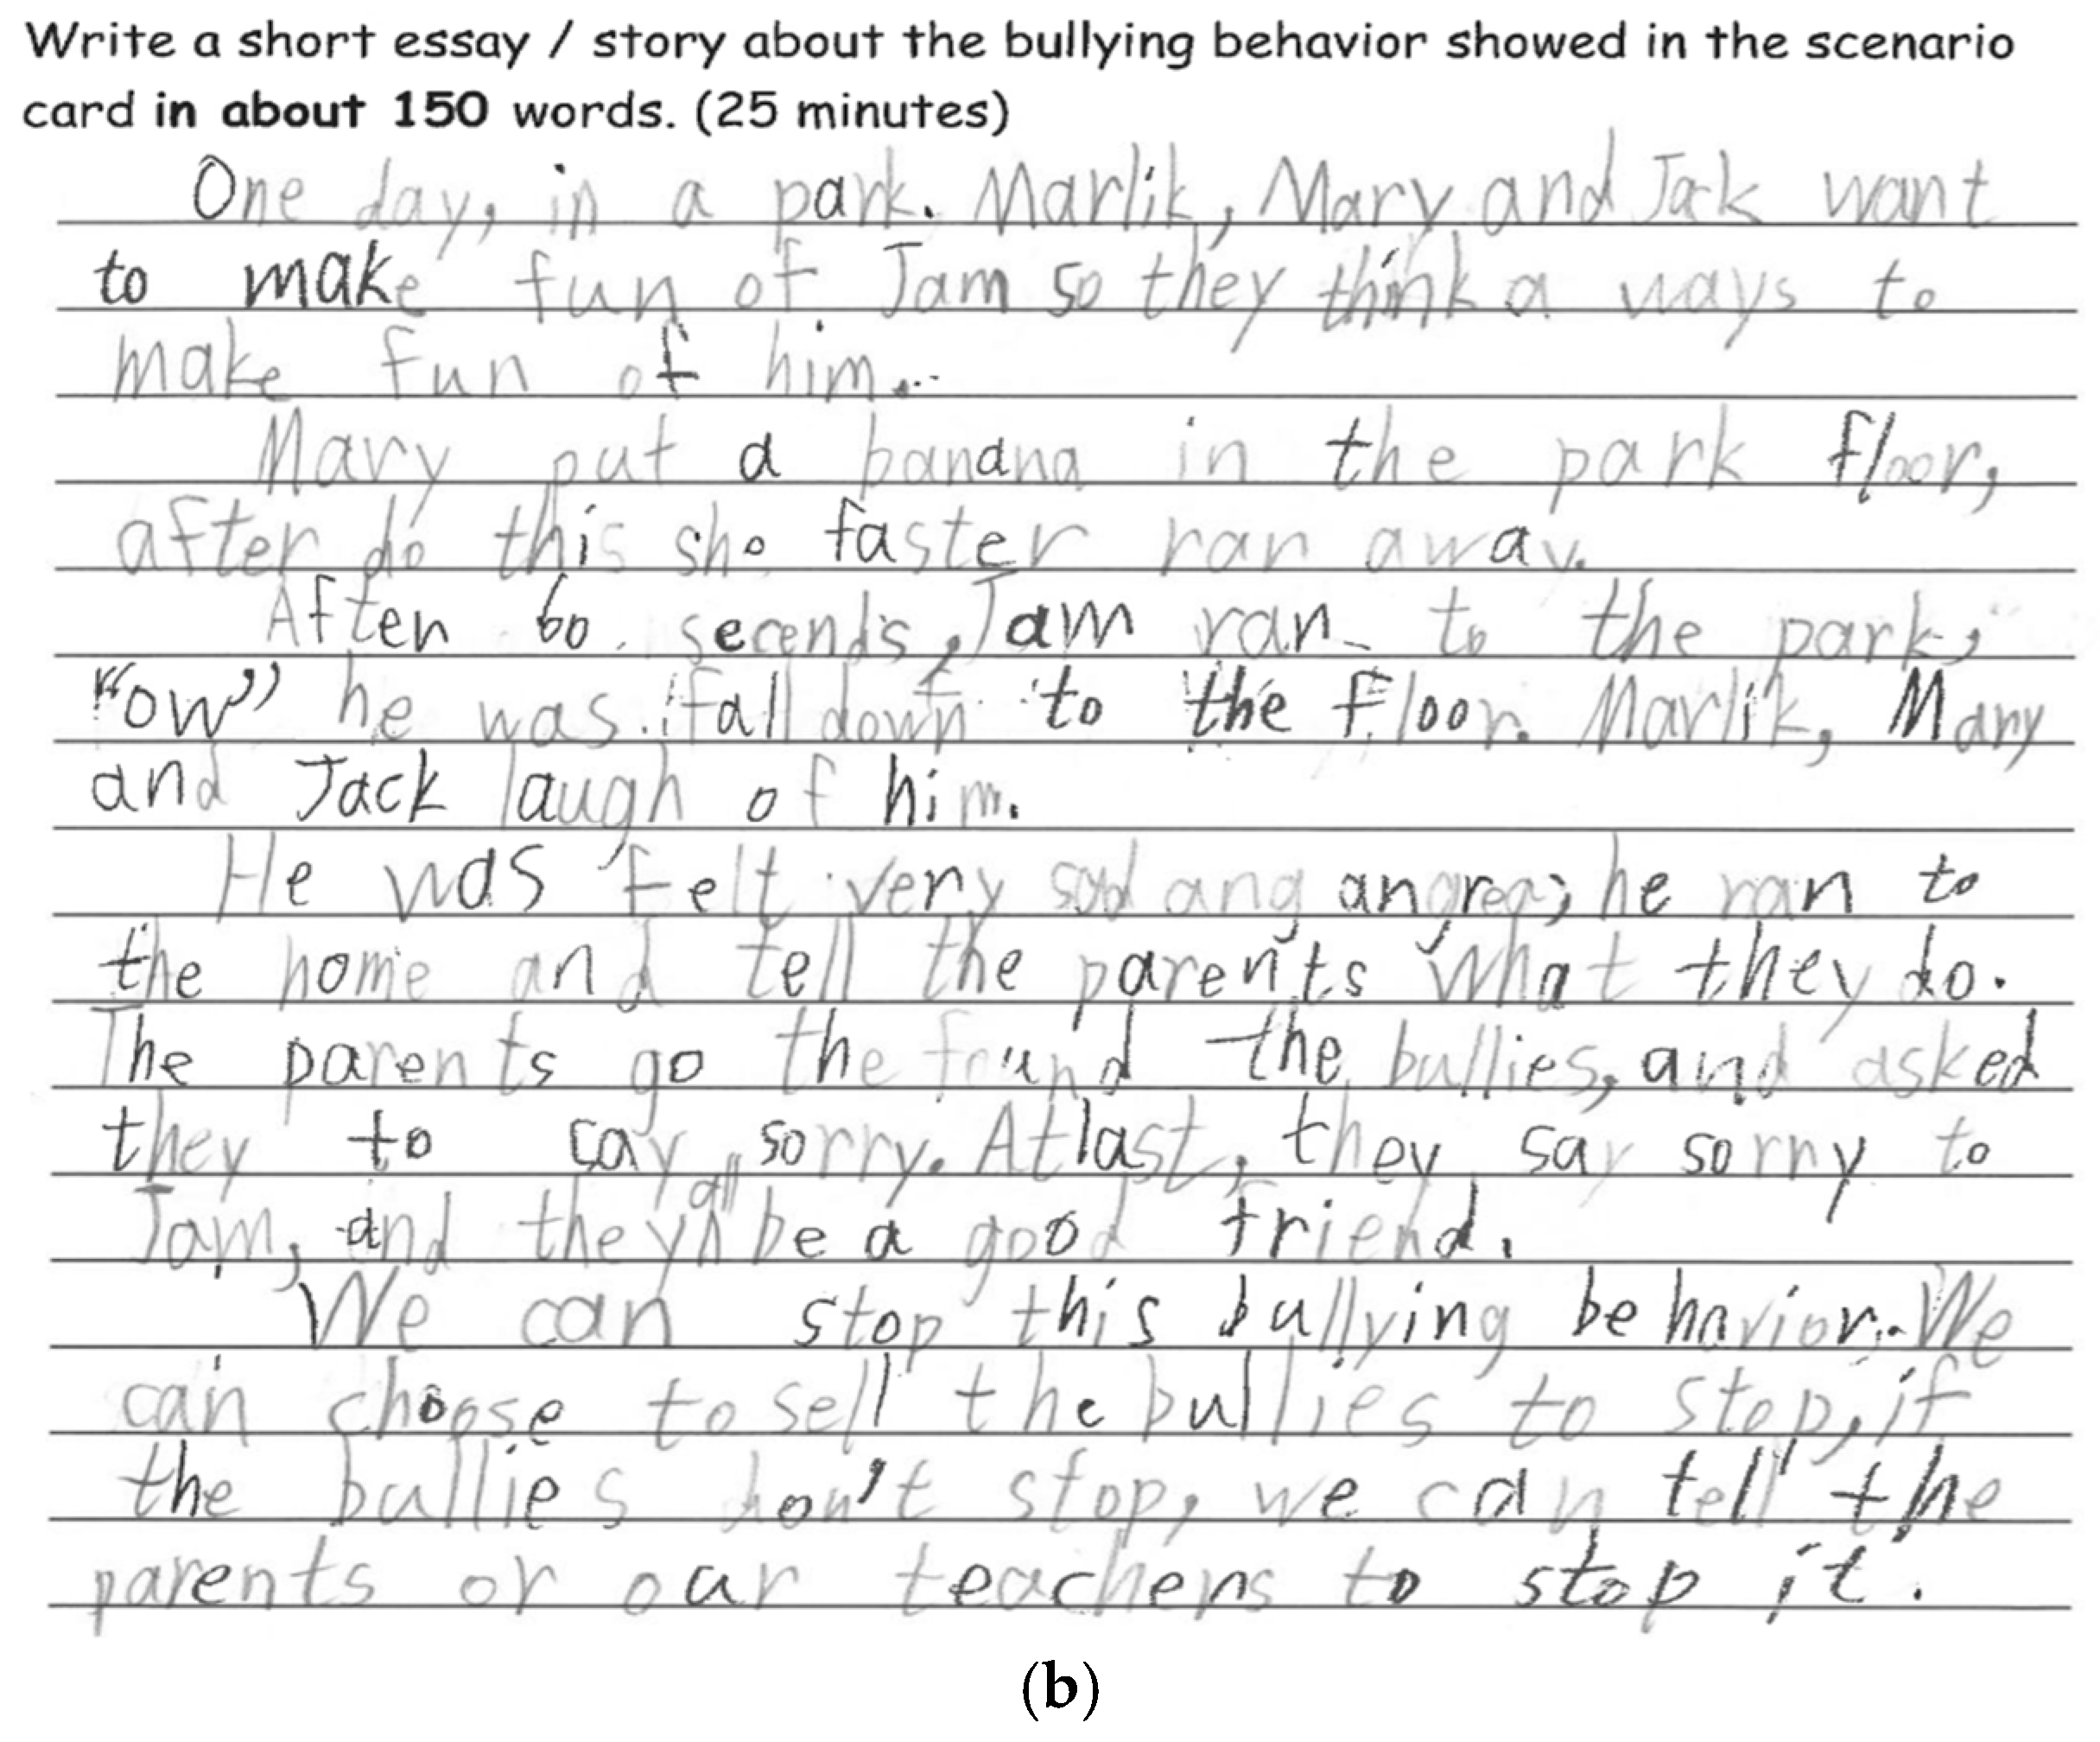 Write a short essay / story about the bullying behavior showed in the scenario
card in about 150 words. (25 minutes)
One day, in a park. Marlik, Mary and Jack want
to make fun of Jam so they think a ways to
make fun of him.
Mary put a banana in the park floor,
after do this she faster ran away.
After 60 secends, Jam ran to the park,
"ow" he was fall down to the floor. Marlik, Mary
and Jack laugh of him.
He was felt very sad ang he ran to
the home and tell the parents what they do.
The parents go the found the bullies, and asked
they to say sorry. At last, they say sorry to
Jam, and they all be a good friend.
We can stop this bullying behavior. We
can choose to sell the bullies to stop, if
the bullies don't stop, we can tell the
parents or our teachers to stop it.
(b)